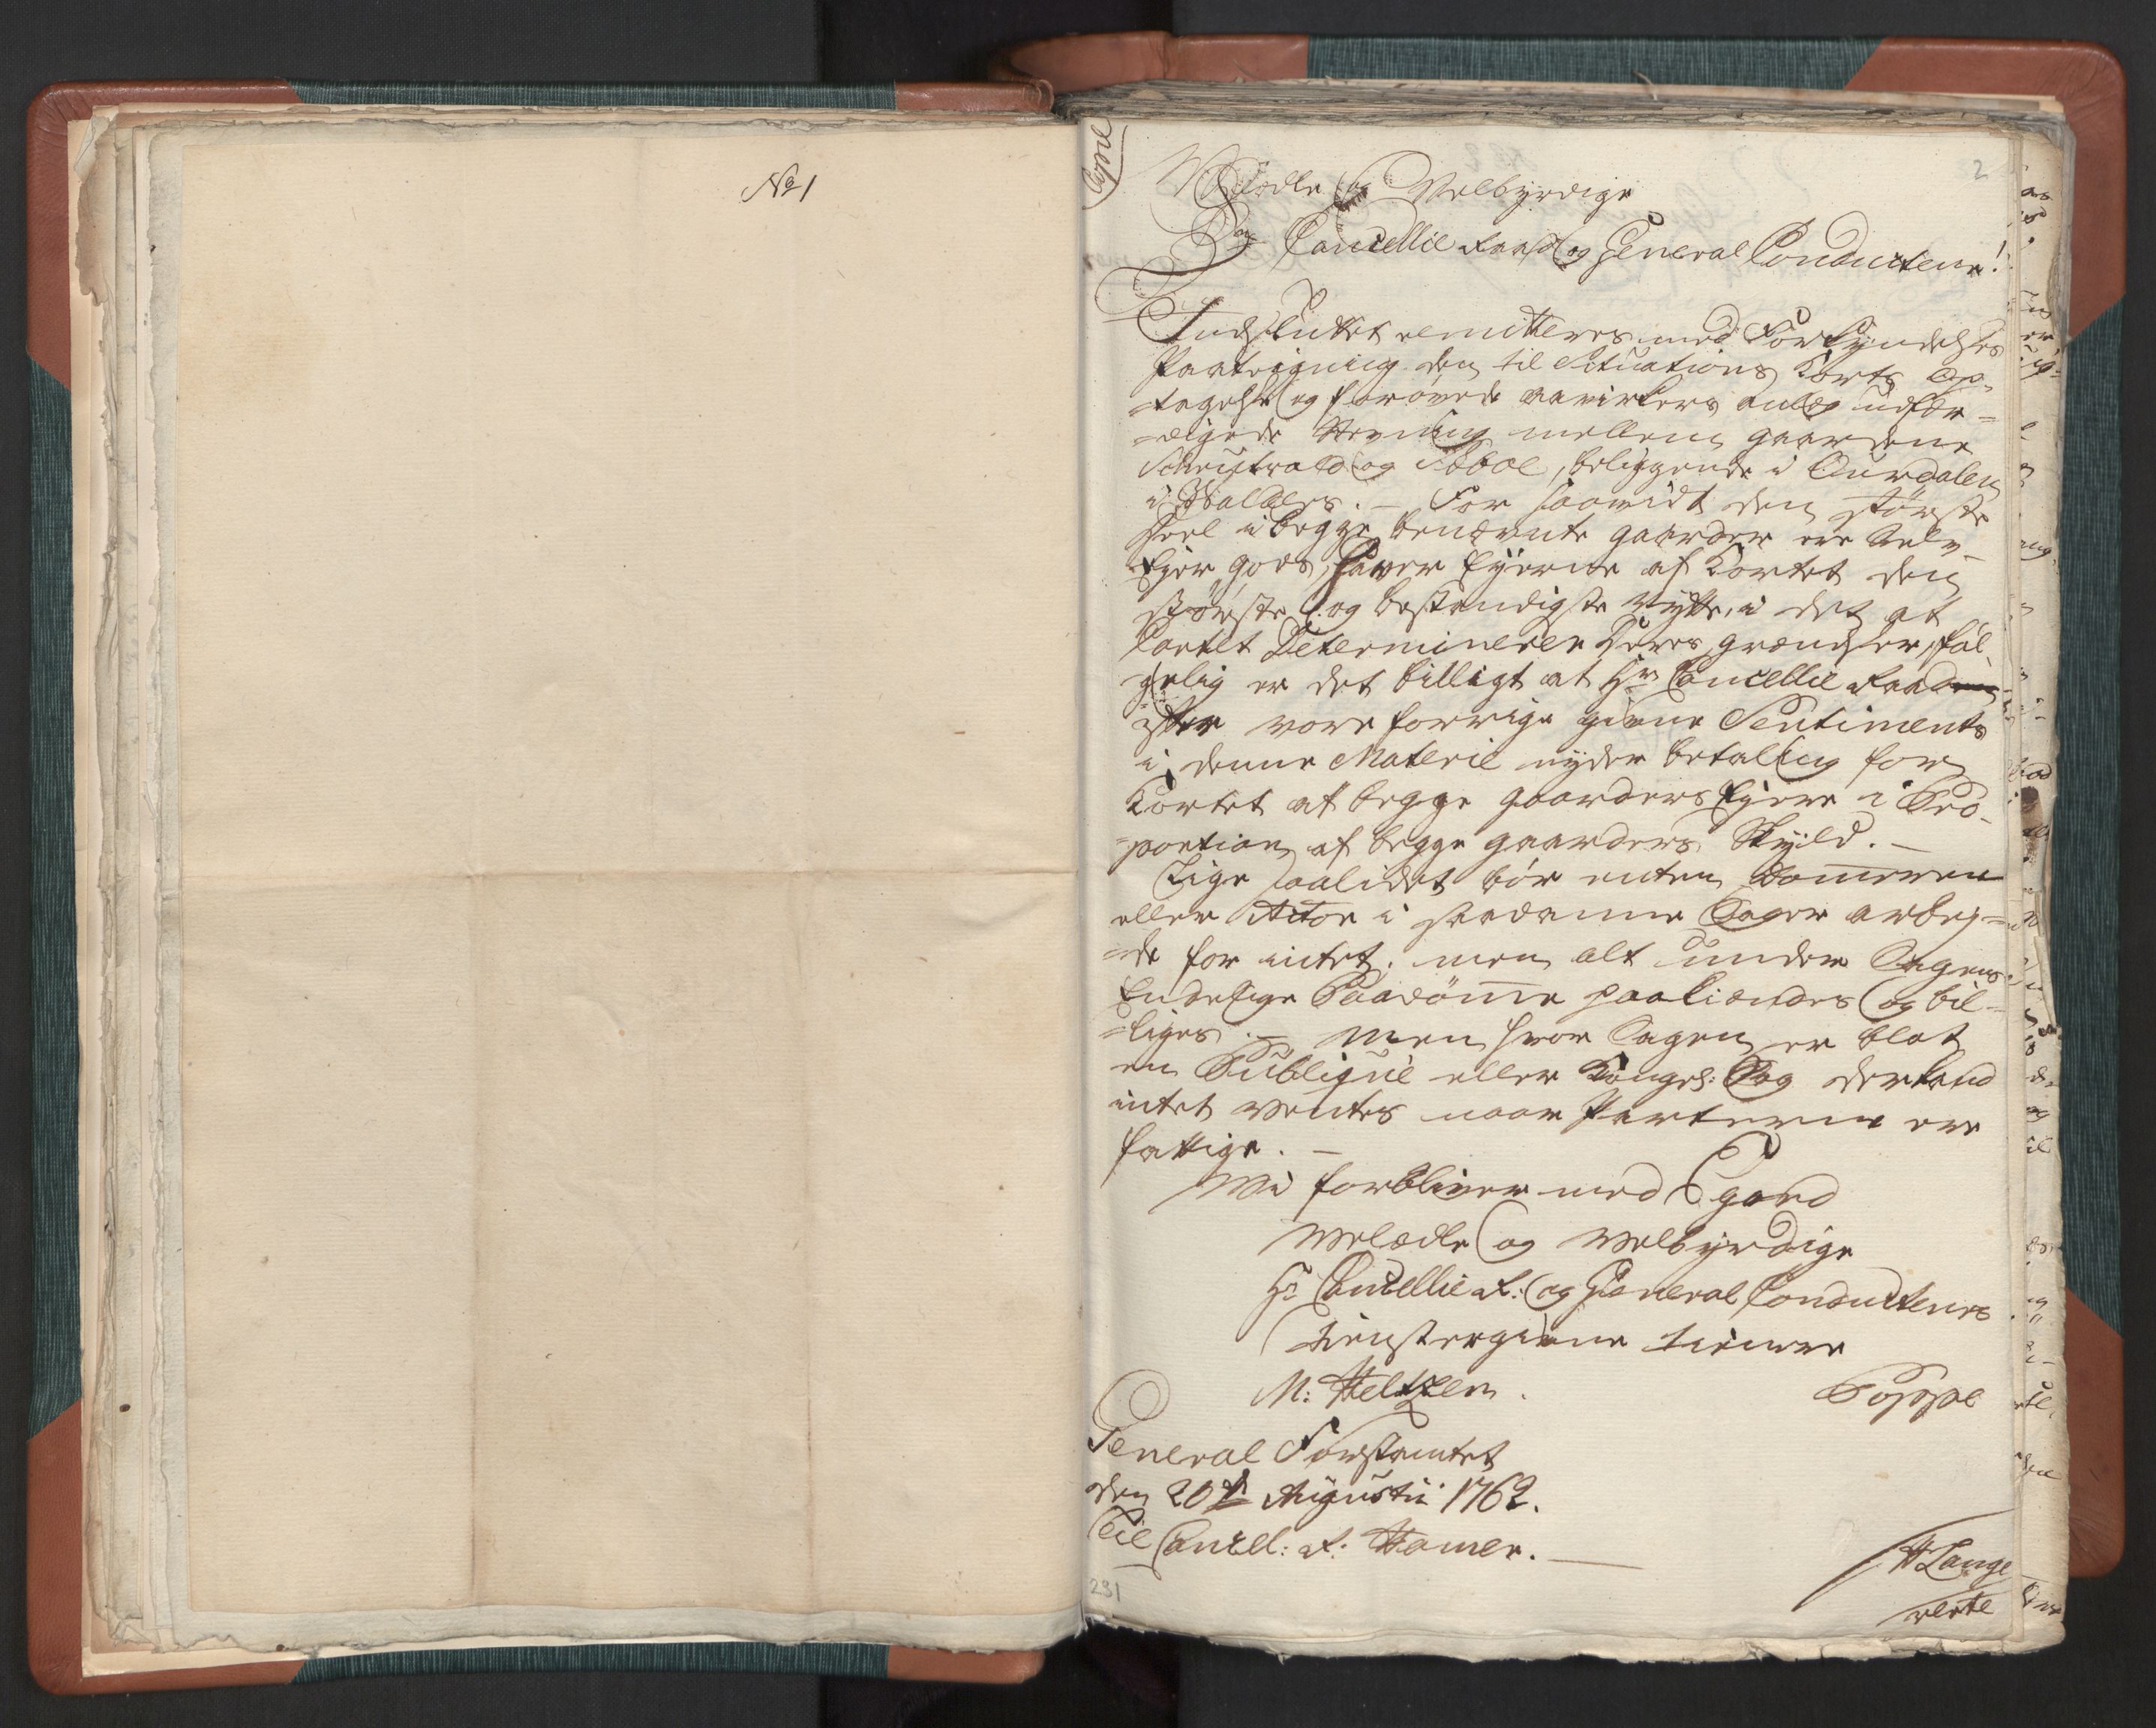 No 1
Copie
2
Velædle og Velbyrdige
Hr Cancellie Raad og General Conducteur!
Indsluttet remitteres med Forkyndelses
Paategning den til Situations Karts Op-
=tagelse og forøvede aavirkers anlæg udfær=
=digede Stevning mellem gaardene
og Søboe, beliggende i Aurdalen
i Walders. – For saavidt den største
Deel i begge benævnte gaarder ere Selv-
Ejer gods, haver Eyerne af Kortet den
største og bestandigste nytte, i det at
Cartet Determinerer deres grændser, føl-
gelig er det billigt at Hr Cancellie Raaden
efter vore forrige givne Sentiments
i denne Materie nyder betaling for
Kortet af begge gaarders Ejere i Pro-
=portion af begge gaarders Skyld. –
Lige saalidet bør enten Dommeren
eller Actor i saadanne Sager arbej=
=de for intet, men alt under Sagens
Endelige Paadømme paakiendes og bil=
=liges. – Men hvor Sagen er blot
en Publique eller Kongel: Sag derfor
intet ventes naar Parterne ere
fattige. –
Vi forbliver med Egard
Velædle og Velbyrdige
Hr Cancellie R: og General Conducteurs
tienstergivne tienere
M: Heltzen. Poppe
General Forstamtet
den 20de Augustii 1762.
Til Cancell: R: Hamer. –
H Lange
verte
231